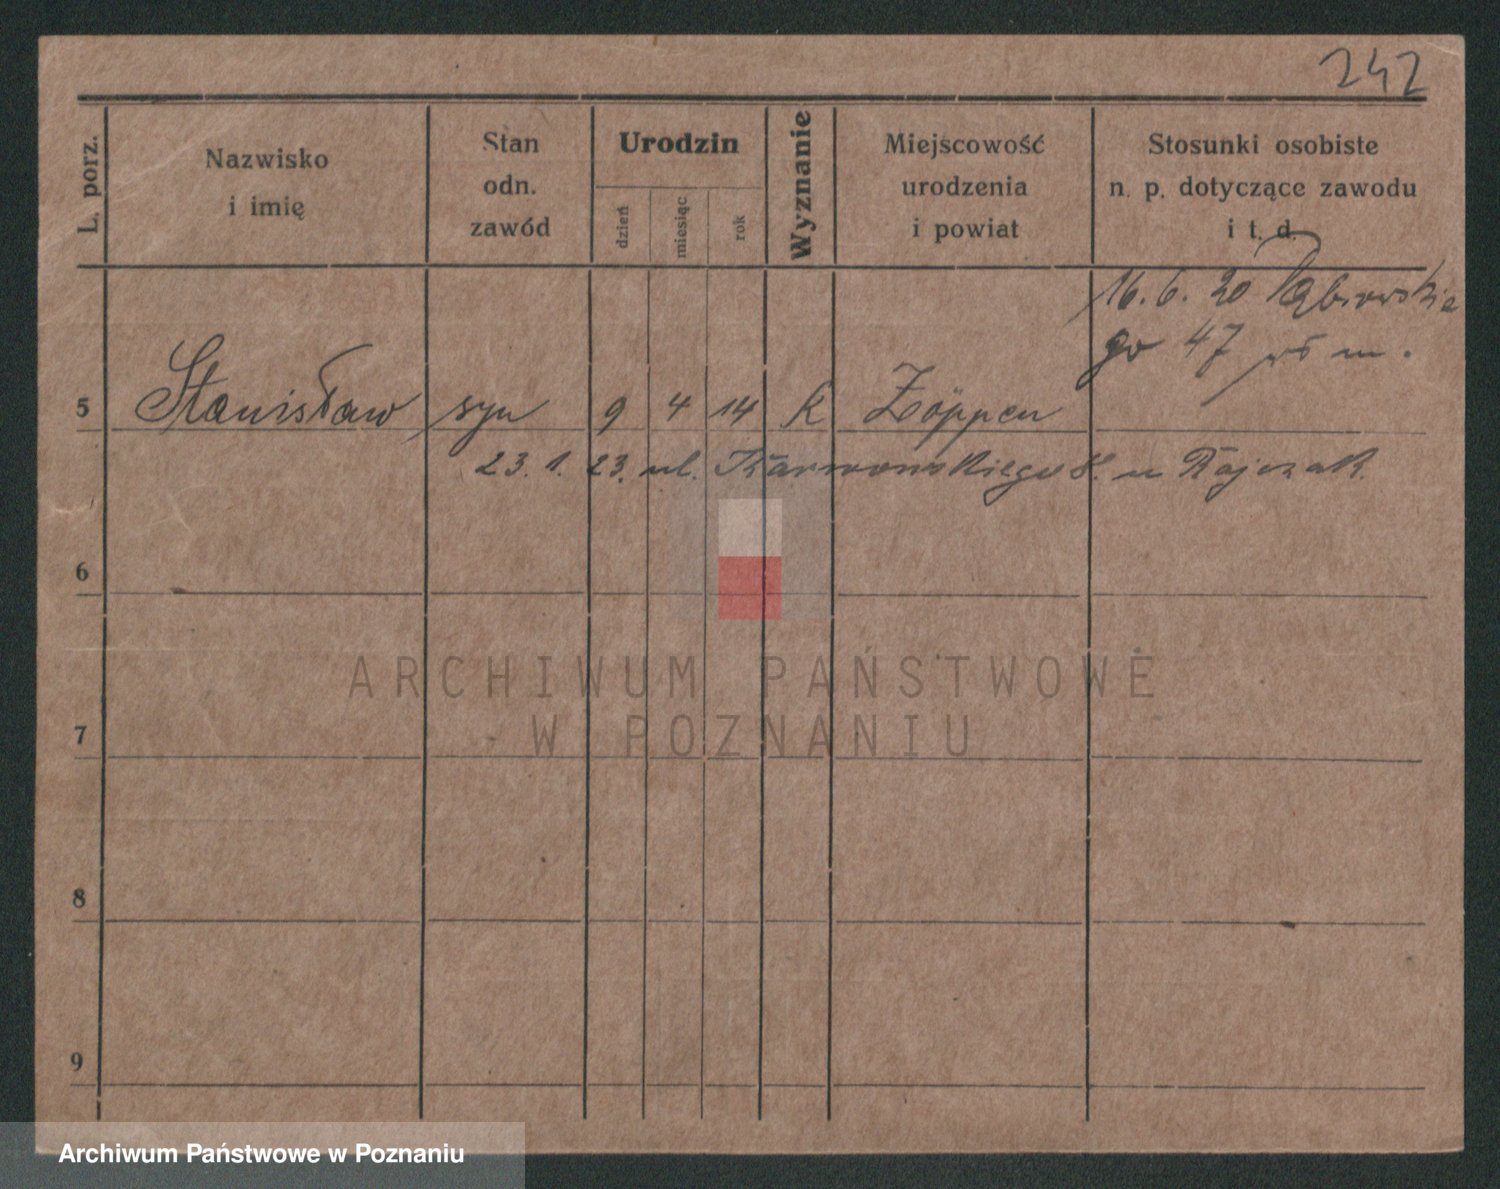 242
L. porz.
Nazwisko
i imię
Stan
odn.
zawód
Urodzin
dzień
miesiąc
rok
Wyznanie
Miejscowość
urodzenia
i powiat
Stosunki osobiste
n. p. dotyczące zawodu
i t. d.
16. 6. 20 Dąbrowskie
go 47 m.
5 Stanisław syn 9 4 14 k Zöppen
23. 1. 23. ul. Karwowskiego 8. u Rajczak.
6
ARCHIWUM PAŃSTWOWE
W POZNANIU
7
8
9
Archiwum Państwowe w Poznaniu